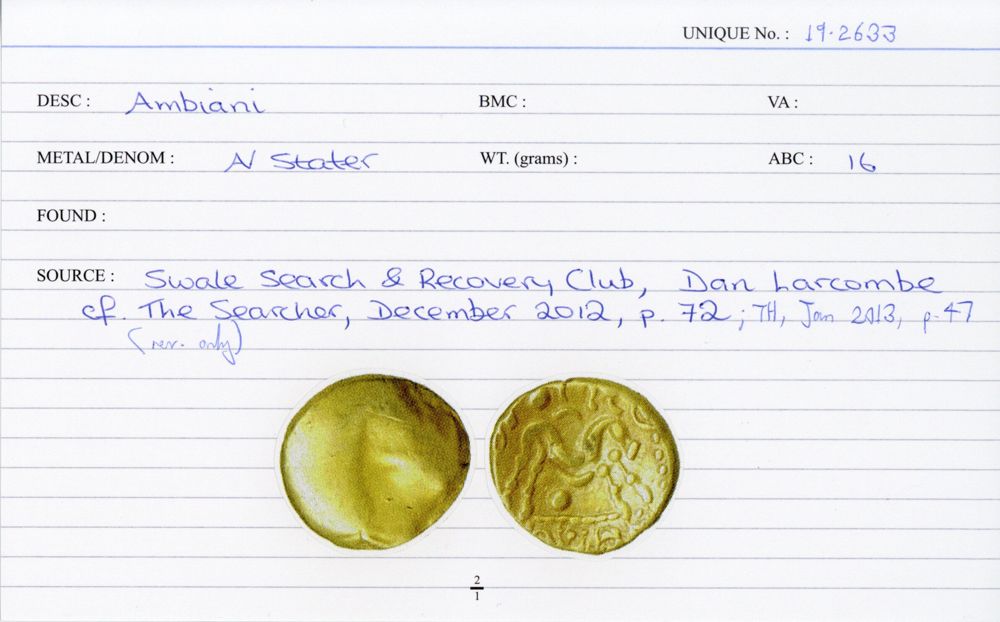 UNIQUE No. : 19·2633
DESC : Ambiani BMC : VA :
METAL/DENOM : N Stater WT. (grams) : ABC : 16
FOUND :
SOURCE : Swale Search & Recovery Club, Dan Larcombe
cf. The Searcher, December 2012, p. 72; TH, Jan 2013, p.47
(rev. only)
2
1